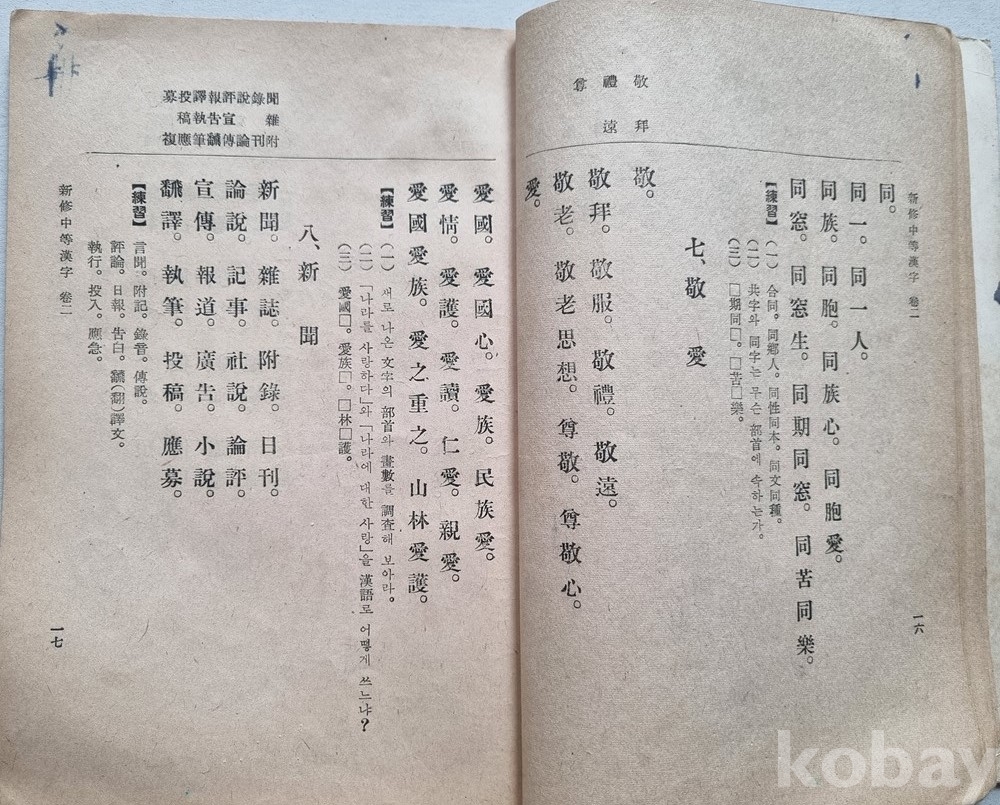 新修中等漢字 卷二
一六
敬拜
禮遠
尊
同。
同一。同一人。
同族。同胞。同族心。同胞愛。
同窓。同窓生。同期同窓。同苦同樂。
【練習】(一) 合同。同鄕人。同性同本。同文同種。
(二) 共字와 同字는 무슨 部首에 속하는가。
(三) □期同□。□苦□樂。
七、敬愛
敬。
敬拜。敬服。敬禮。敬遠。
敬老。敬老思想。尊敬。尊敬心。
愛。
聞雜附
錄刊
說論
評宣傳
報告飜
譯執筆
投稿應
募複
愛國。愛國心。愛族。民族愛。
愛情。愛護。愛讀。仁愛。親愛。
愛國愛族。愛之重之。山林愛護。
【練習】(一) 새로 나온 文字의 部首와 畫數를 調査해 보아라。
(二) 「나라를 사랑하다」와 「나라에 대한 사랑」을 漢語로 어떻게 쓰느냐?
(三) 愛國□。愛族□。□林□護。
八、新聞
新聞。雜誌。附錄。日刊。
論說。記事。社說。論評。
宣傳。報道。廣告。小說。
飜譯。執筆。投稿。應募。
【練習】言聞。附記。錄音。傳說。
評論。日報。告白。飜(翻)譯文。
執行。投入。應急。
新修中等漢字 卷二
一七
kobay